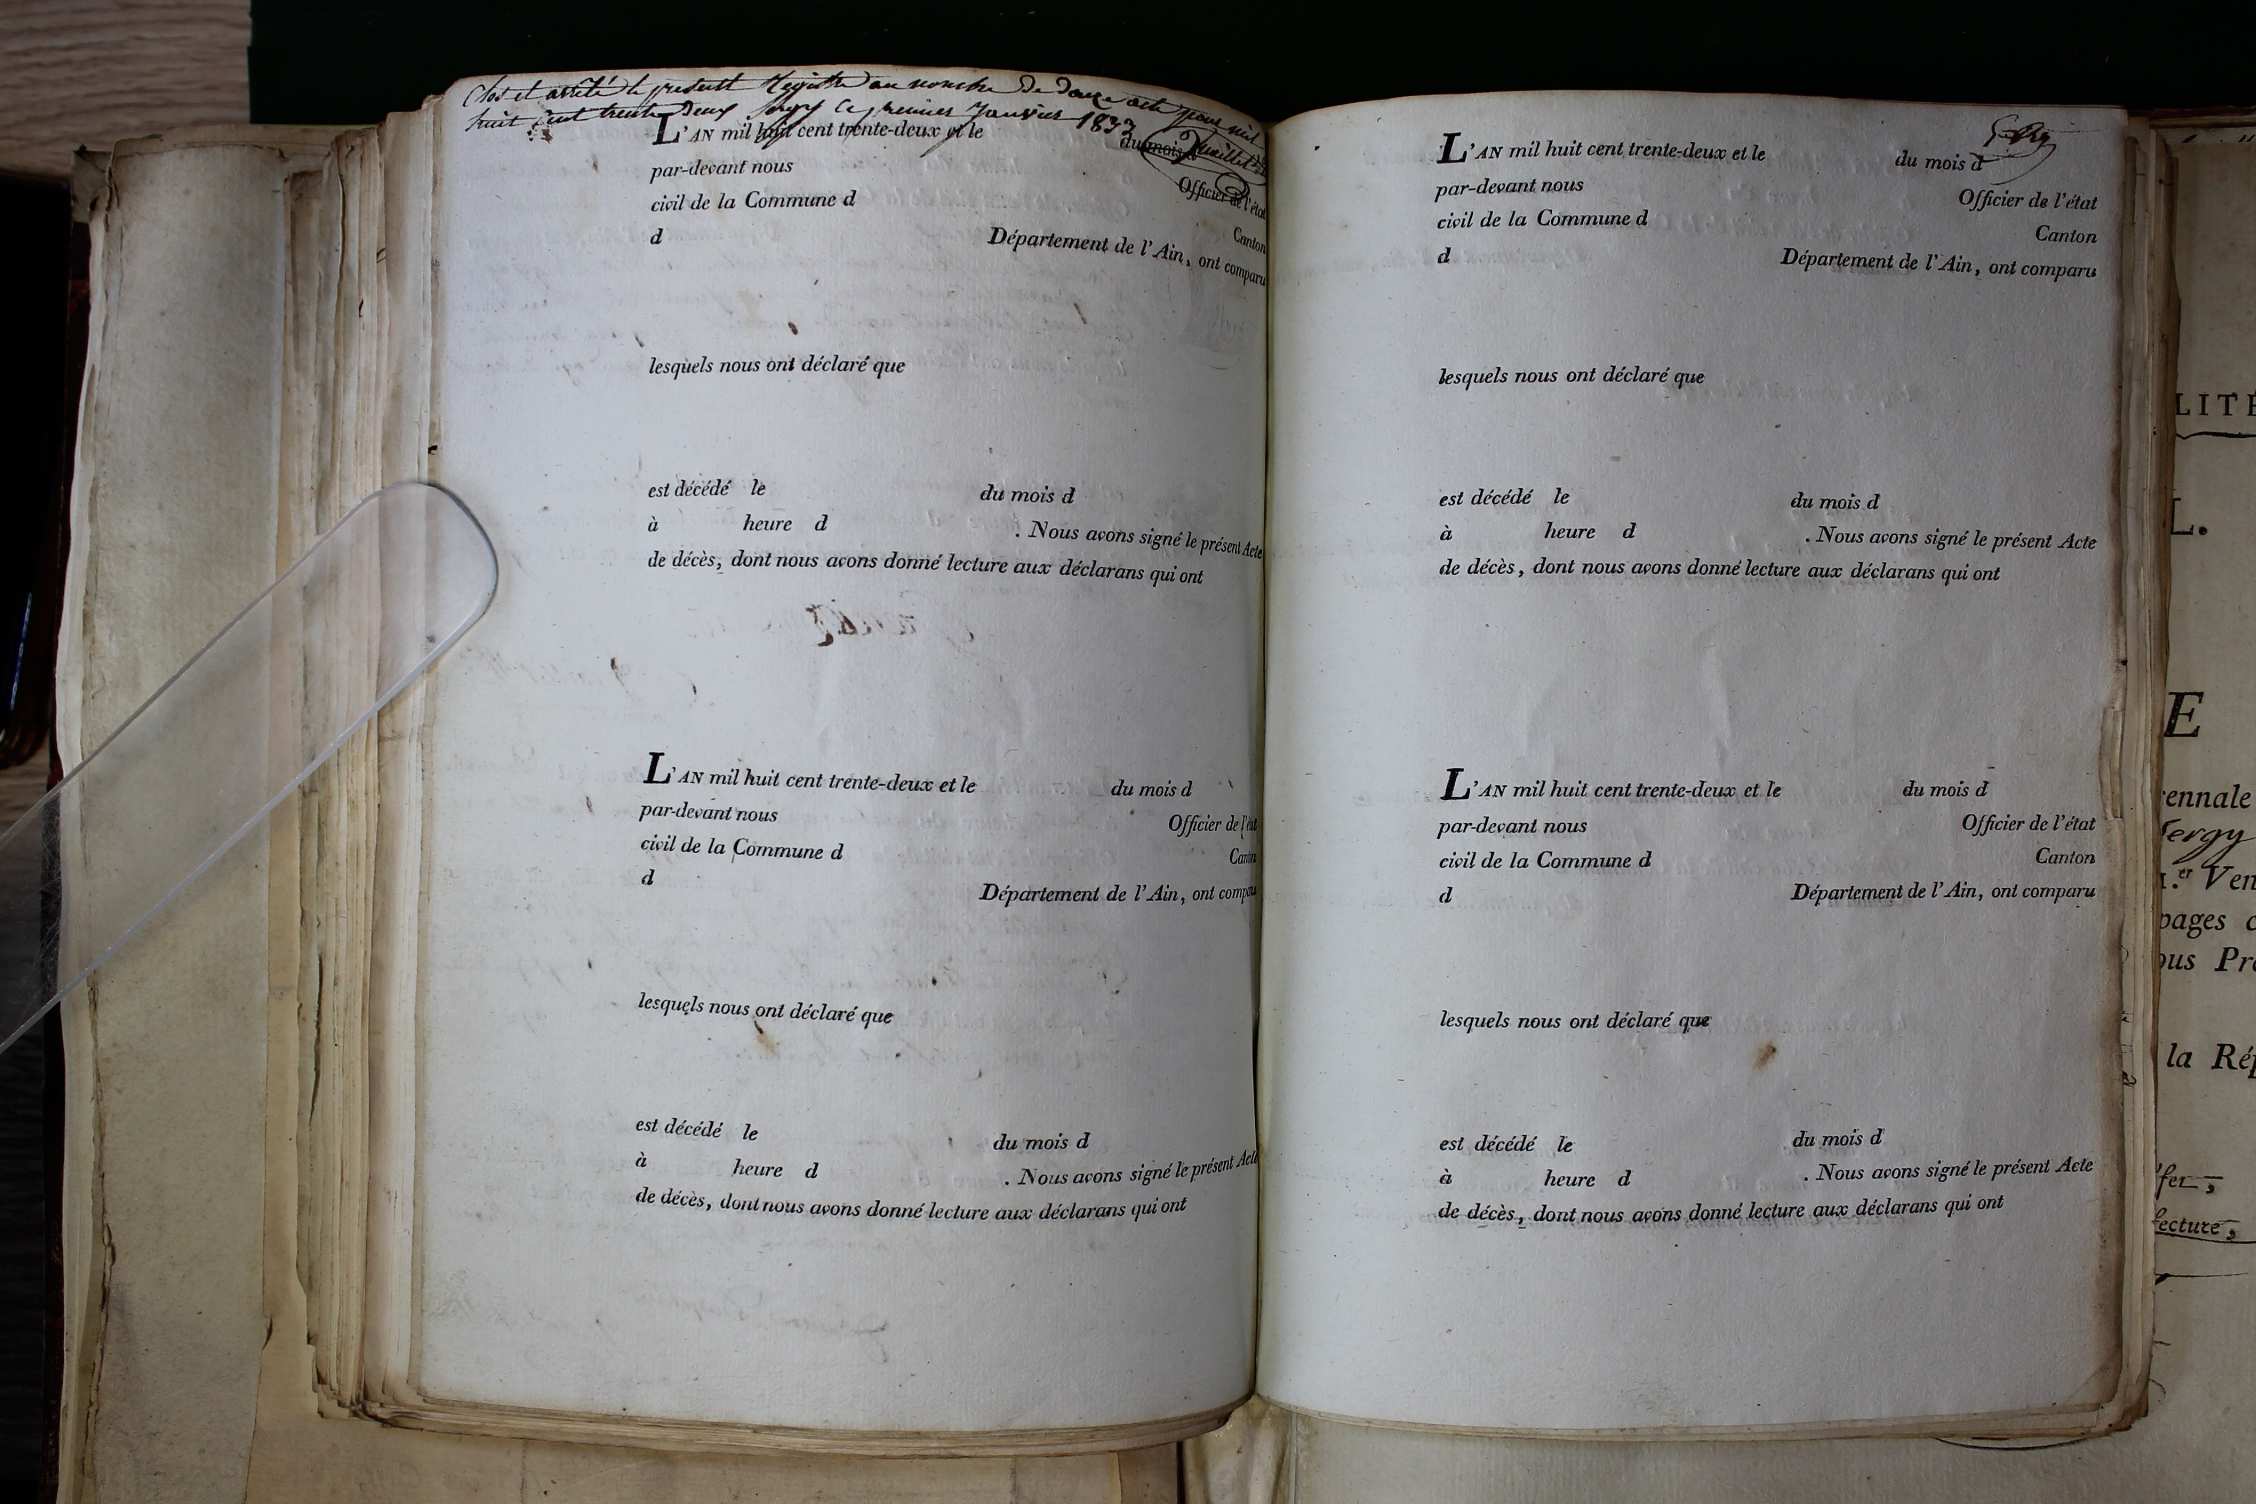 Clos et arrêté le present Registre au nombre de douze acte pour mil
huit cent trente Deux Sergy Ce premier Janvier 1833
L'AN mil huit cent trente-deux et le du mois d
par-devant nous Officier de l'état
civil de la Commune d Canton
d Département de l'Ain, ont comparu
lesquels nous ont déclaré que
est décédé le du mois d
à heure d . Nous avons signé le présent Acte
de décès, dont nous avons donné lecture aux déclarans qui ont
L'AN mil huit cent trente-deux et le du mois d
par-devant nous Officier de l'état
civil de la Commune d Canton
d Département de l'Ain, ont comparu
lesquels nous ont déclaré que
est décédé le du mois d
à heure d . Nous avons signé le présent Acte
de décès, dont nous avons donné lecture aux déclarans qui ont
L'AN mil huit cent trente-deux et le du mois d
par-devant nous Officier de l'état
civil de la Commune d Canton
d Département de l'Ain, ont comparu
lesquels nous ont déclaré que
est décédé le du mois d
à heure d . Nous avons signé le présent Acte
de décès, dont nous avons donné lecture aux déclarans qui ont
L'AN mil huit cent trente-deux et le du mois d
par-devant nous Officier de l'état
civil de la Commune d Canton
d Département de l'Ain, ont comparu
lesquels nous ont déclaré que
est décédé le du mois d
à heure d . Nous avons signé le présent Acte
de décès, dont nous avons donné lecture aux déclarans qui ont
LITÉ
L.
E
ennale
Sergy
1.er Ven
pages c
ous Pré
la Rép
fer,
fecture,